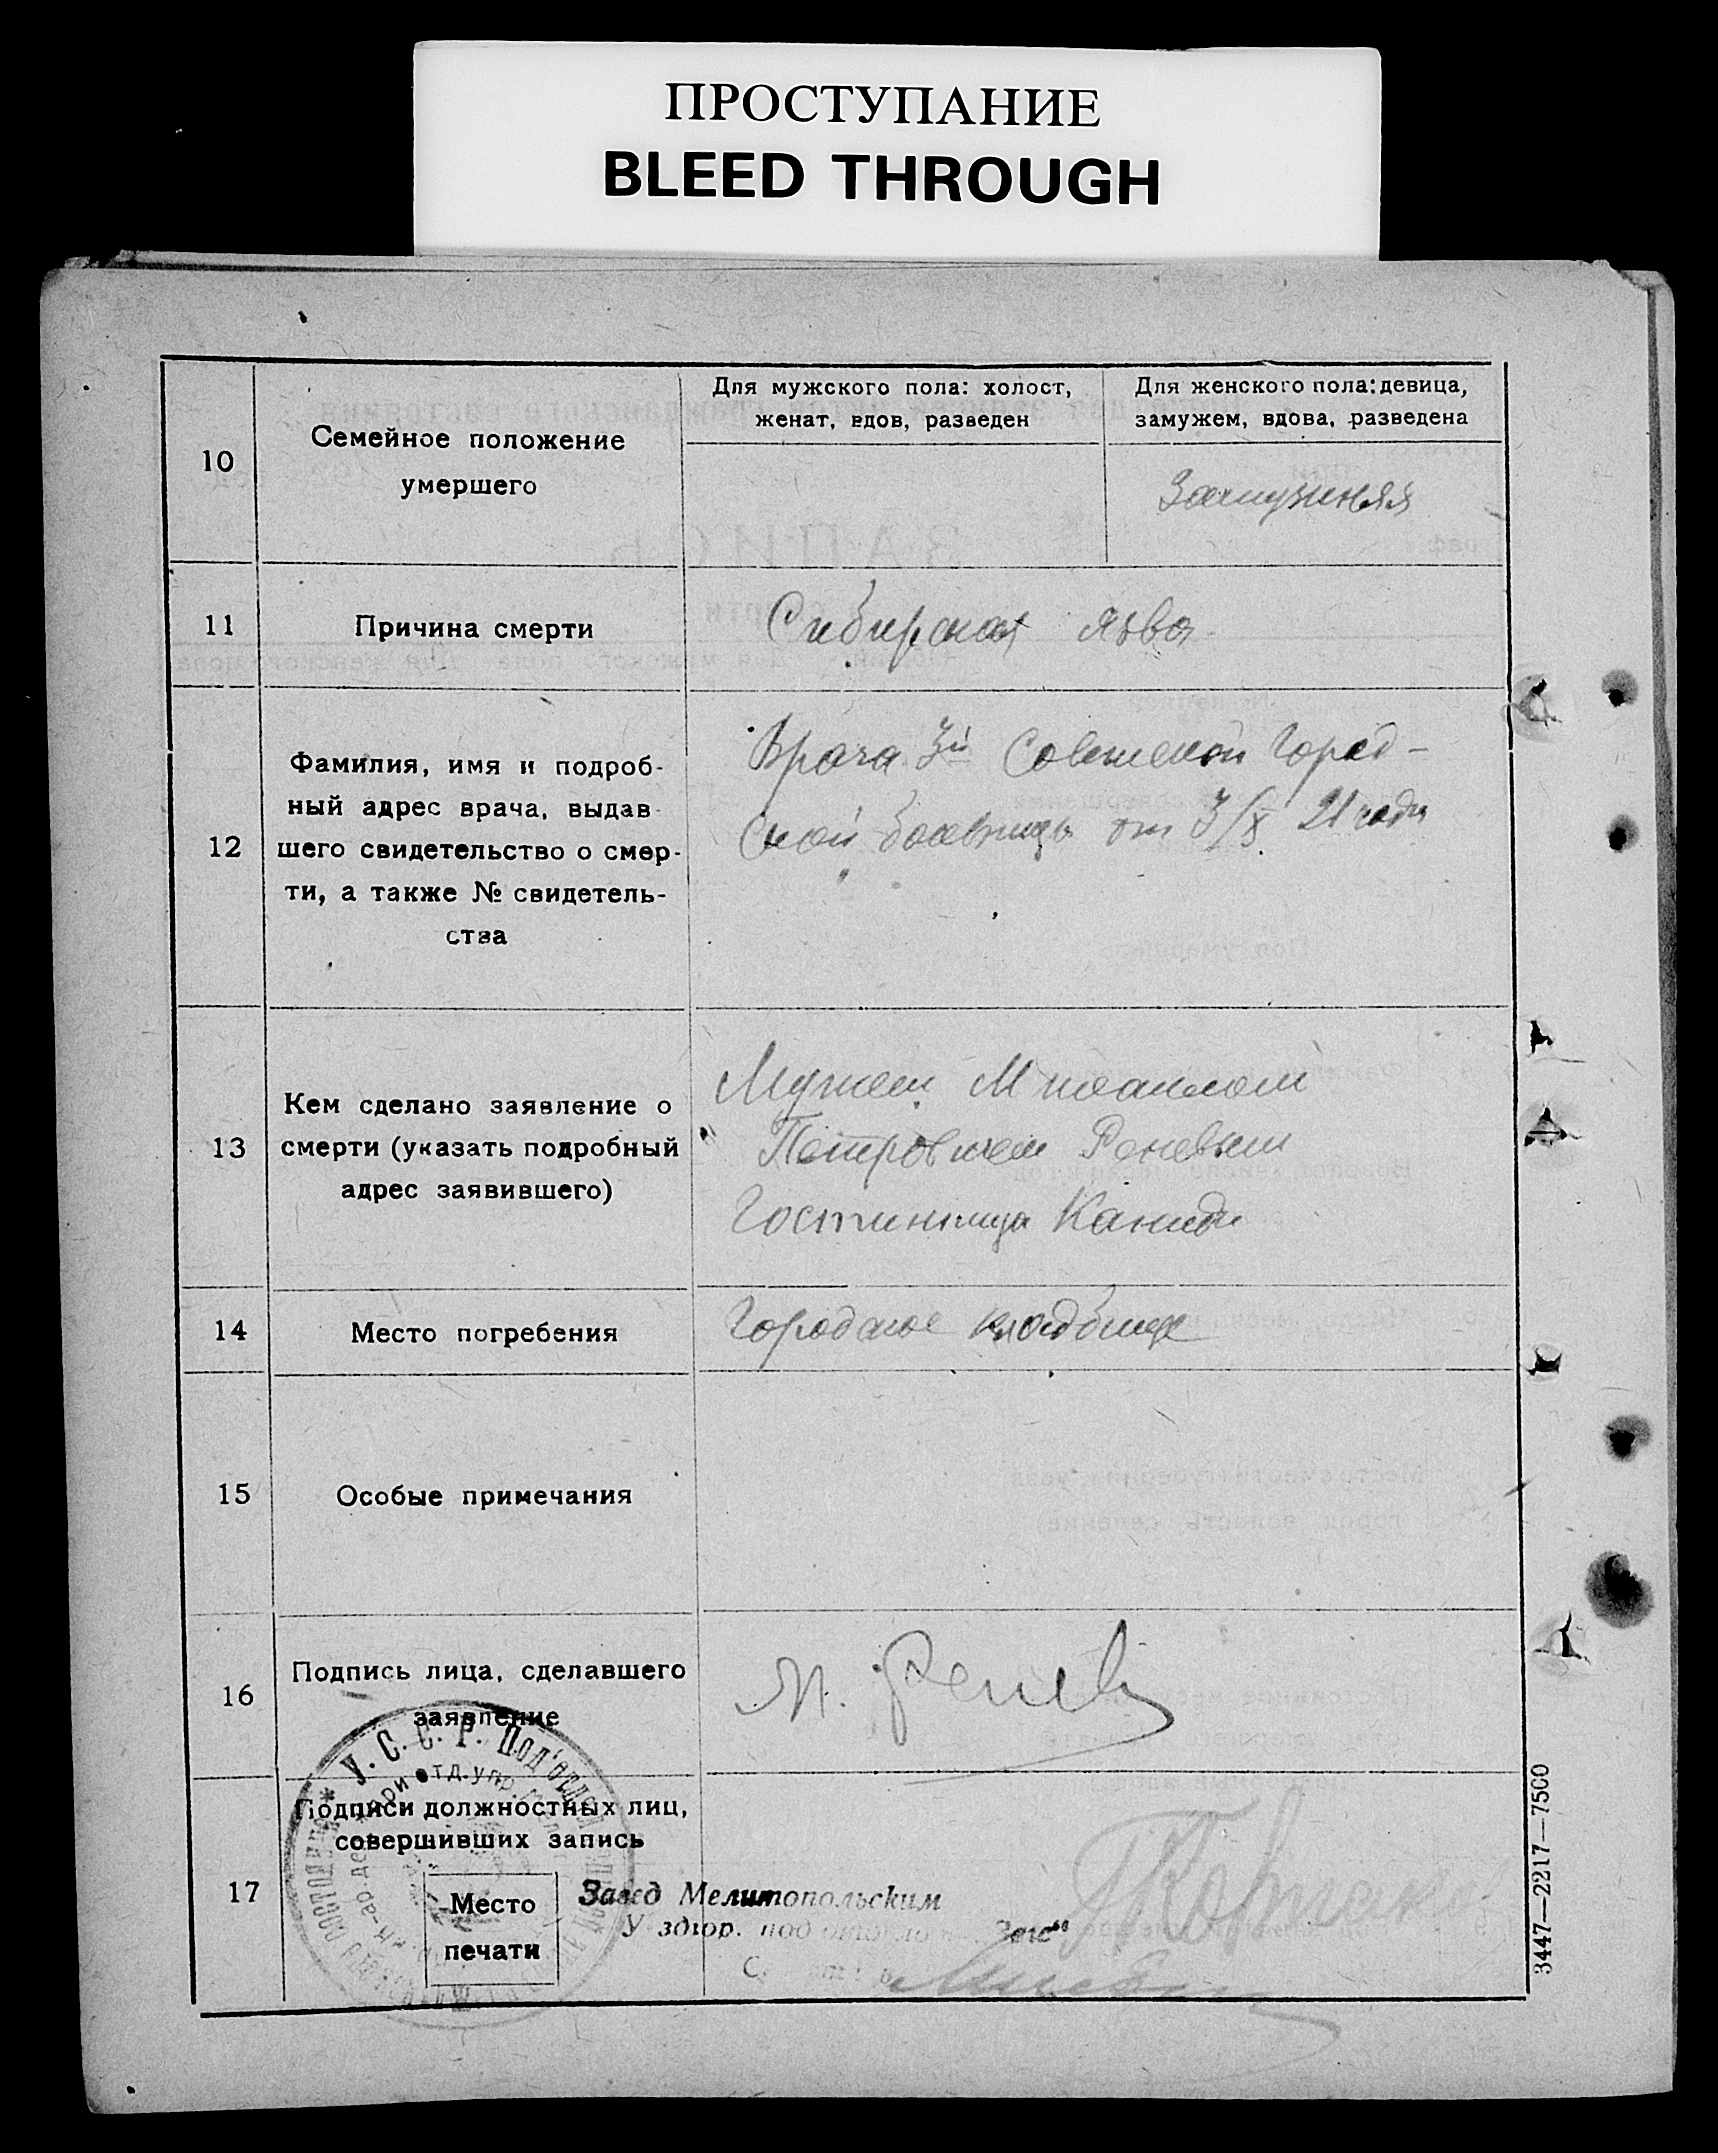 ПРОСТУПАНИЕ
BLEED THROUGH
10
Семейное положение
умершего
Для мужского пола: холост,
женат, вдов, разведен
Для женского пола: девица,
замужем, вдова, разведена
Замужняя
11
Причина смерти
Сибирская язва
12
Фамилия, имя и подроб-
ный адрес врача, выдав-
шего свидетельство о смер-
ти, а также № свидетель-
ства
Врача 3й Советской Город-
ской больницы от 3/X 21 года
13
Кем сделано заявление о
смерти (указать подробный
адрес заявившего)
Мужем Михаилом
Петровичем Реневым
Гостинница
14
Место погребения
Городское кладбище
15
Особые примечания
16
Подпись лица, сделавшего
заявление
М. Ренев
17
Подписи должностных лиц,
совершивших запись
Место
печати
У.С.С.Р. Под'отдел
при отд. упр.
Завед Мелитопольским
У здгор. под Загс
3447—2217—7500